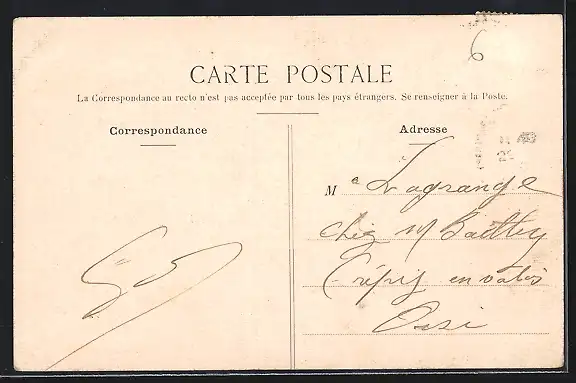 6
CARTE POSTALE
La Correspondance au recto n'est pas acceptée par tous les pays étrangers. Se renseigner à la Poste.
Correspondance
Adresse
Me Lagrange
chez M
Crépy en valois
Oise